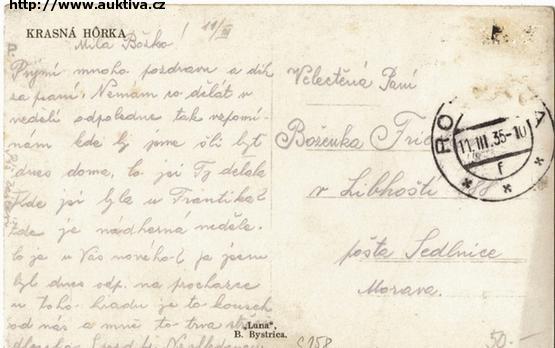 http://www.auktiva.cz
KRASNÁ HÔRKA
11/III
Milá Boško!
Prijmi mnoho pozdravu a dík
za psaní. Nemám co dělat v
neděli odpoledne tak
nám kde by jsme šli byt
dnes doma, to jsi Ty dělala
Kde jsi byla u Frantika?
Zde je nádherná neděle.
Co je u Vás nového? ja jsem
byl dnes odp. na procházce
u toho hradu je to kousek
od nás a mně to trva
Velectěná Paní
Boženka
v Libhošti
pošta Sedlnice
Morava.
RO A
11.III.35-10
f
"Luna",
B. Bystrica.
C158
50.-